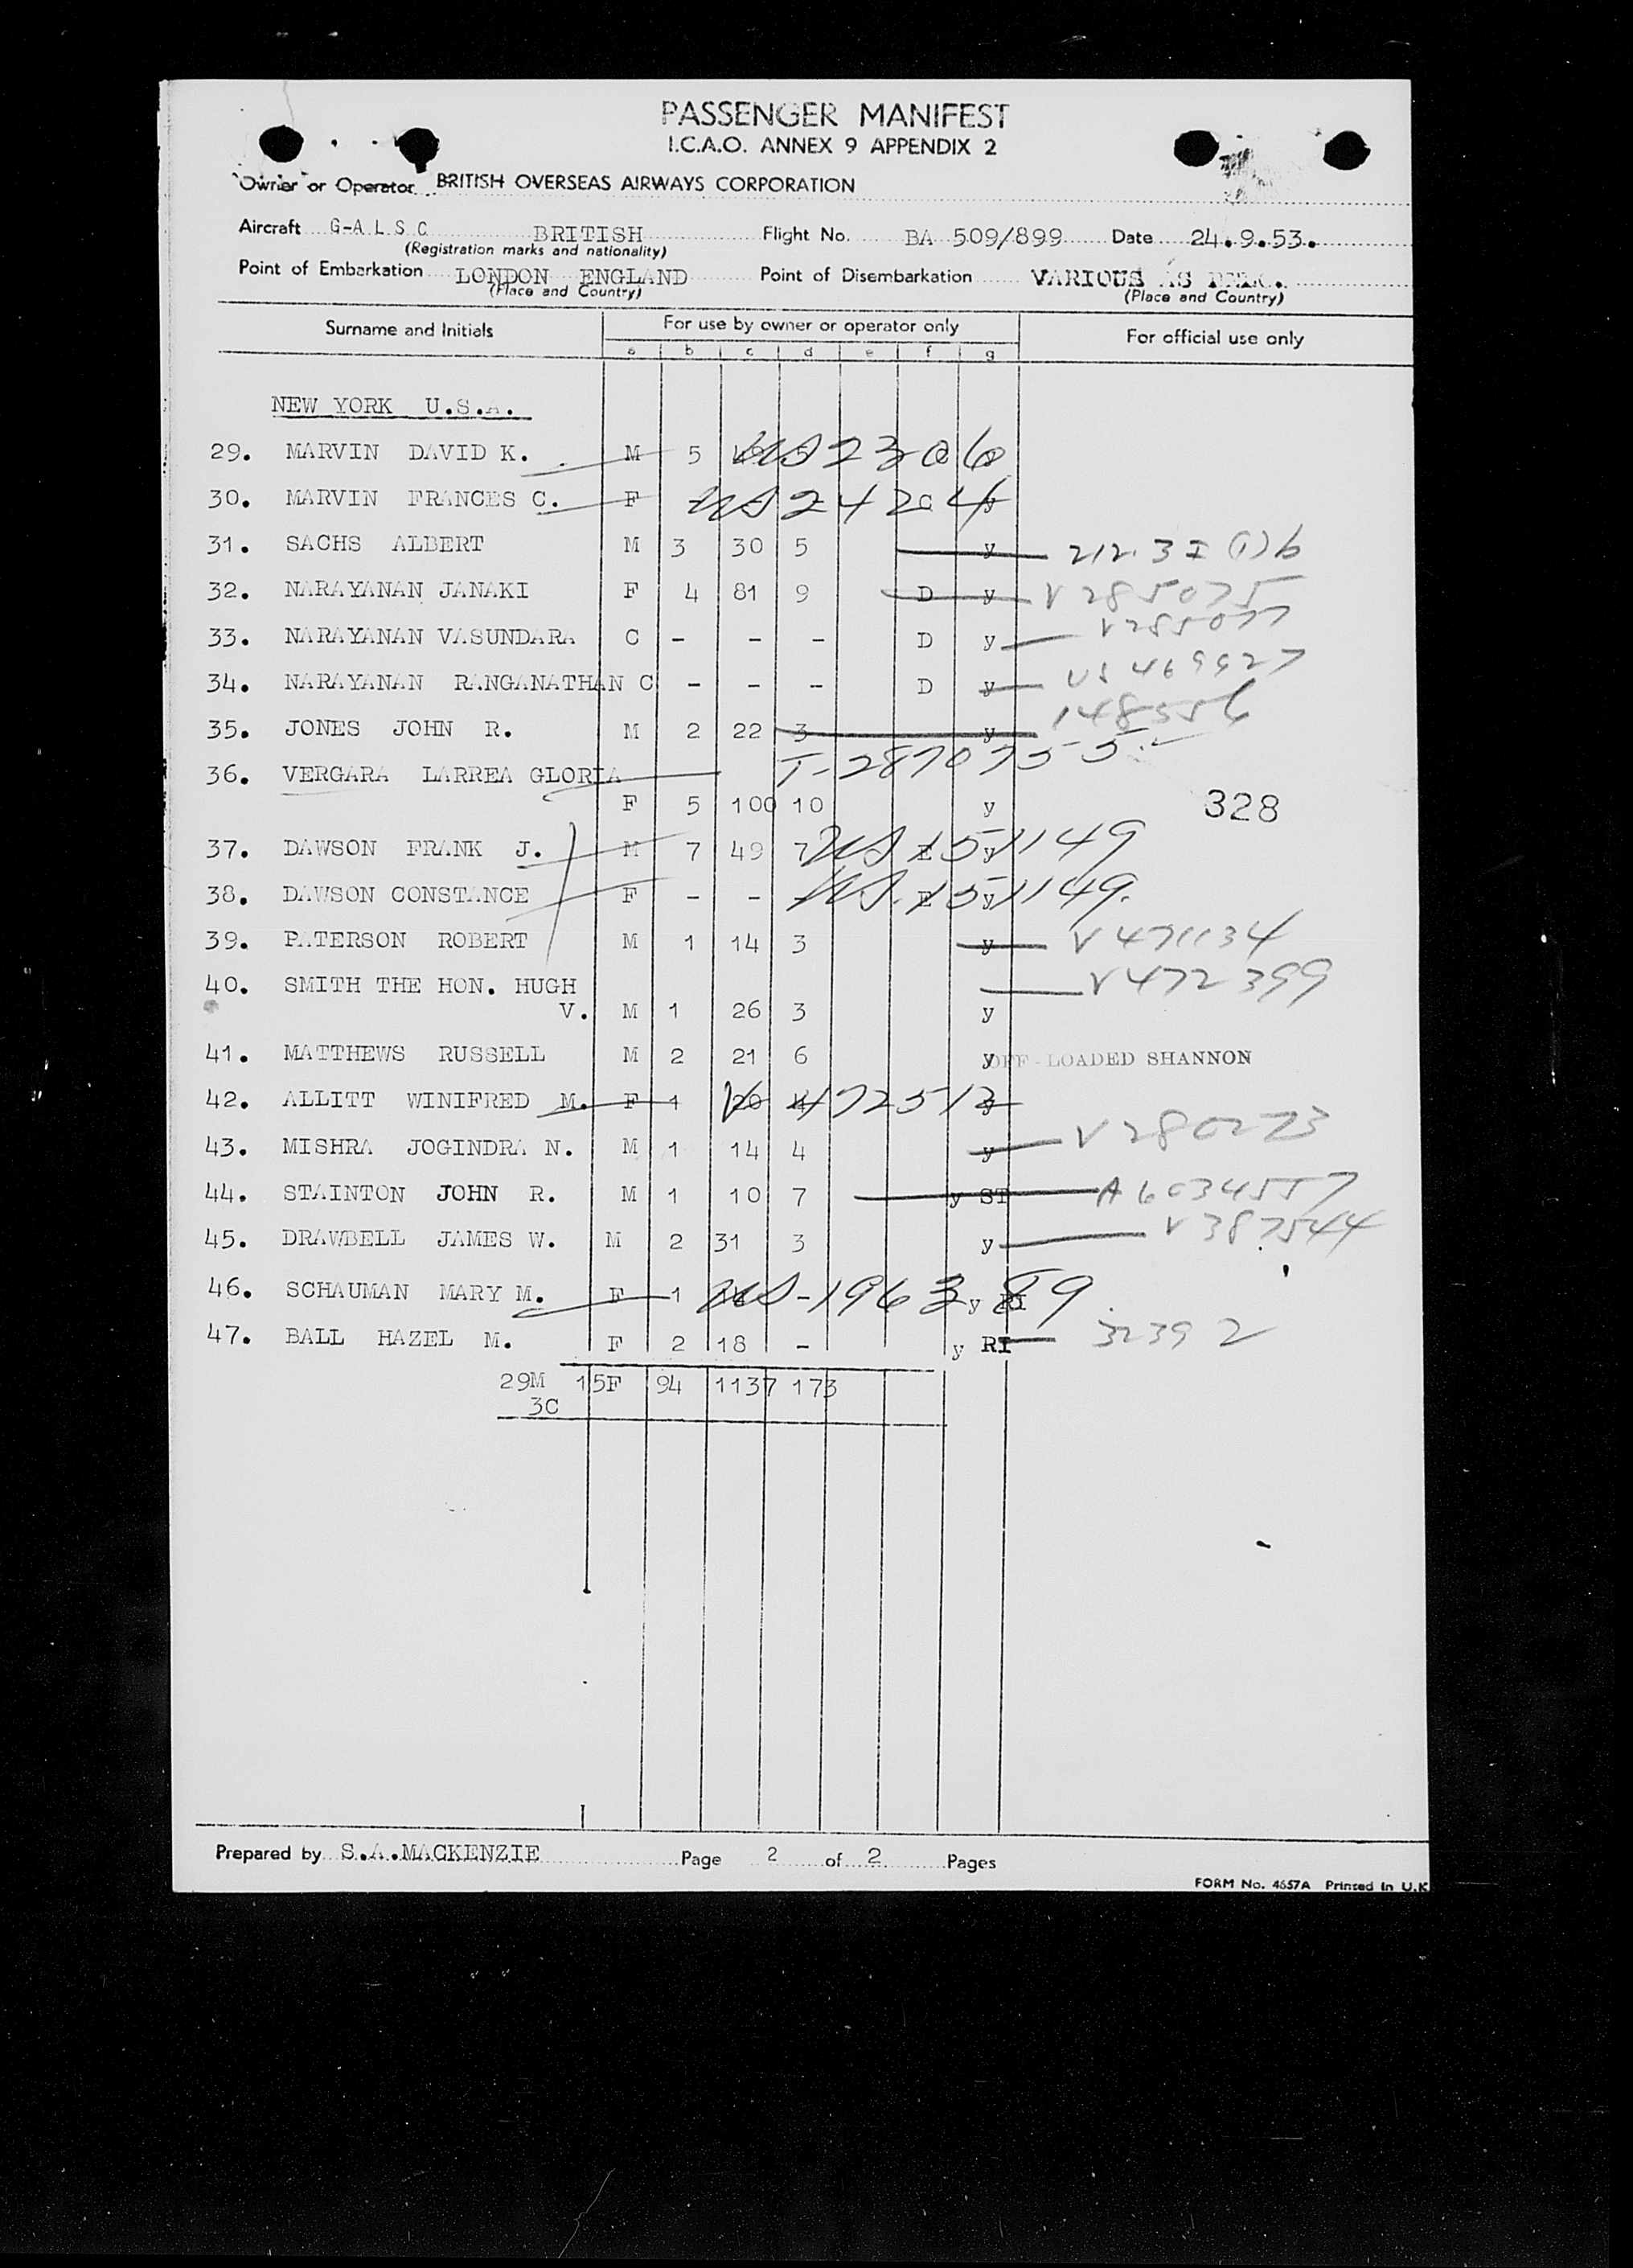 PASSENGER MANIFEST
I.C.A.O. ANNEX 9 APPENDIX 2
Owner or Operator BRITISH OVERSEAS AIRWAYS CORPORATION
Aircraft G-ALSC BRITISH Flight No. BA 509/899 Date 24.9.53.
(Registration marks and nationality)
Point of Embarkation LONDON ENGLAND Point of Disembarkation VARIOUS AS
(Place and Country) (Place and Country)
Surname and Initials For use by owner or operator only For official use only
a b c d e f g
NEW YORK U.S.A.
29. MARVIN DAVID K. M 5
30. MARVIN FRANCES C. F
31. SACHS ALBERT M 3 30 5 y 212.3
32. NARAYANAN JANAKI F 4 81 9 D y V 285075
33. NARAYANAN VASUNDARA C - - - D y V 285077
34. NARAYANAN RANGANATHAN C - - - D y
35. JONES JOHN R. M 2 22 3 y 148556
36. VERGARA LARREA GLORIA T-2870755
F 5 100 10 y
328
37. DAWSON FRANK J. M 7 49 7 US 151149
38. DAWSON CONSTANCE F - - US. 151149.
39. PATERSON ROBERT M 1 14 3 y V 471134
40. SMITH THE HON. HUGH V 472399
V. M 1 26 3 y
41. MATTHEWS RUSSELL M 2 21 6 y OFF-LOADED SHANNON
42. ALLITT WINIFRED M. F 1 V 472513
43. MISHRA JOGINDRA N. M 1 14 4 y V 280273
44. STAINTON JOHN R. M 1 10 7 y ST A6034557
45. DRAWBELL JAMES W. M 2 31 3 y V 387544
46. SCHAUMAN MARY M. F 1 US-196389 y RI
47. BALL HAZEL M. F 2 18 - y RI 32392
29M 15F 94 1137 173
3C
Prepared by S.A.MACKENZIE Page 2 of 2 Pages
FORM No. 4657A Printed in U.K